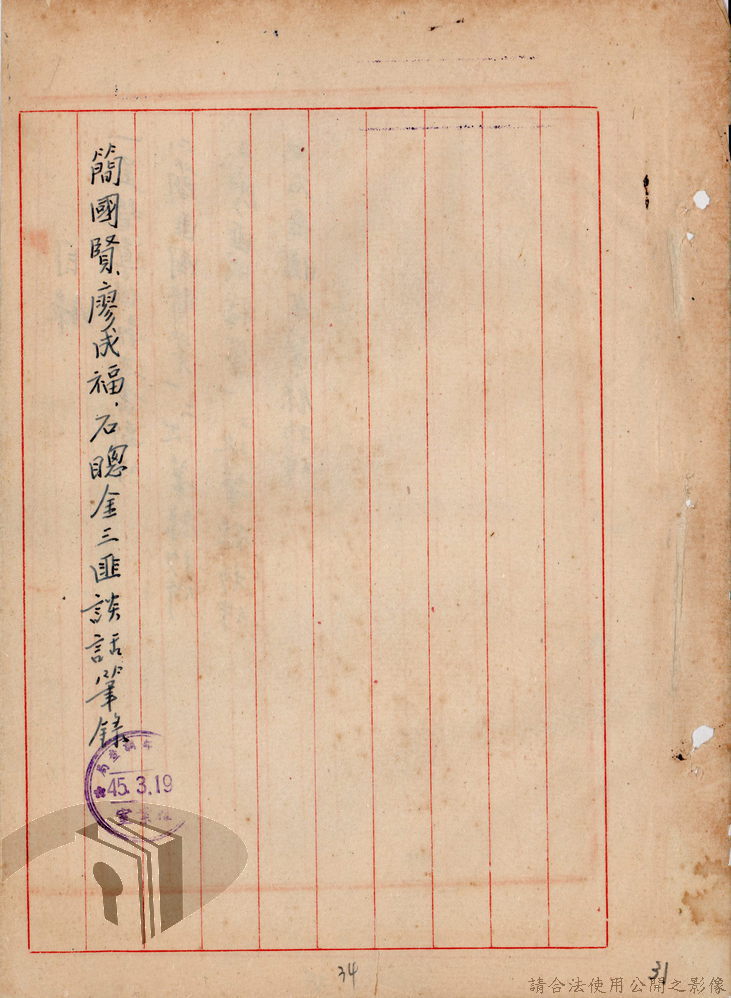 簡國賢、廖成福．石聰金三匪談話筆錄
45.3.19
34
31
請合法使用公開之影像